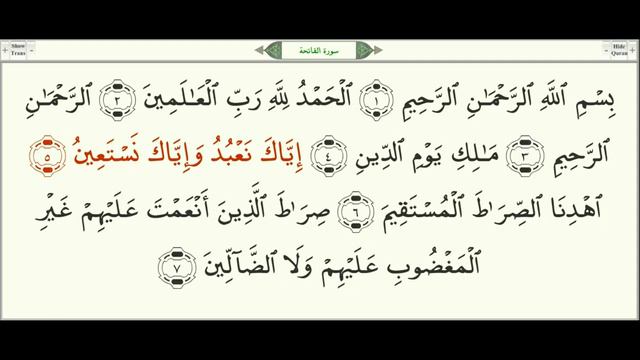 + Show Trans -
سورة الفاتحة
- Hide Quran +
بِسْمِ ٱللَّهِ ٱلرَّحْمَـٰنِ ٱلرَّحِيمِ ١ ٱلْحَمْدُ لِلَّهِ رَبِّ ٱلْعَـٰلَمِينَ ٢ ٱلرَّحْمَـٰنِ
ٱلرَّحِيمِ ٣ مَـٰلِكِ يَوْمِ ٱلدِّينِ ٤ إِيَّاكَ نَعْبُدُ وَإِيَّاكَ نَسْتَعِينُ ٥
ٱهْدِنَا ٱلصِّرَٰطَ ٱلْمُسْتَقِيمَ ٦ صِرَٰطَ ٱلَّذِينَ أَنْعَمْتَ عَلَيْهِمْ غَيْرِ
ٱلْمَغْضُوبِ عَلَيْهِمْ وَلَا ٱلضَّآلِّينَ ٧